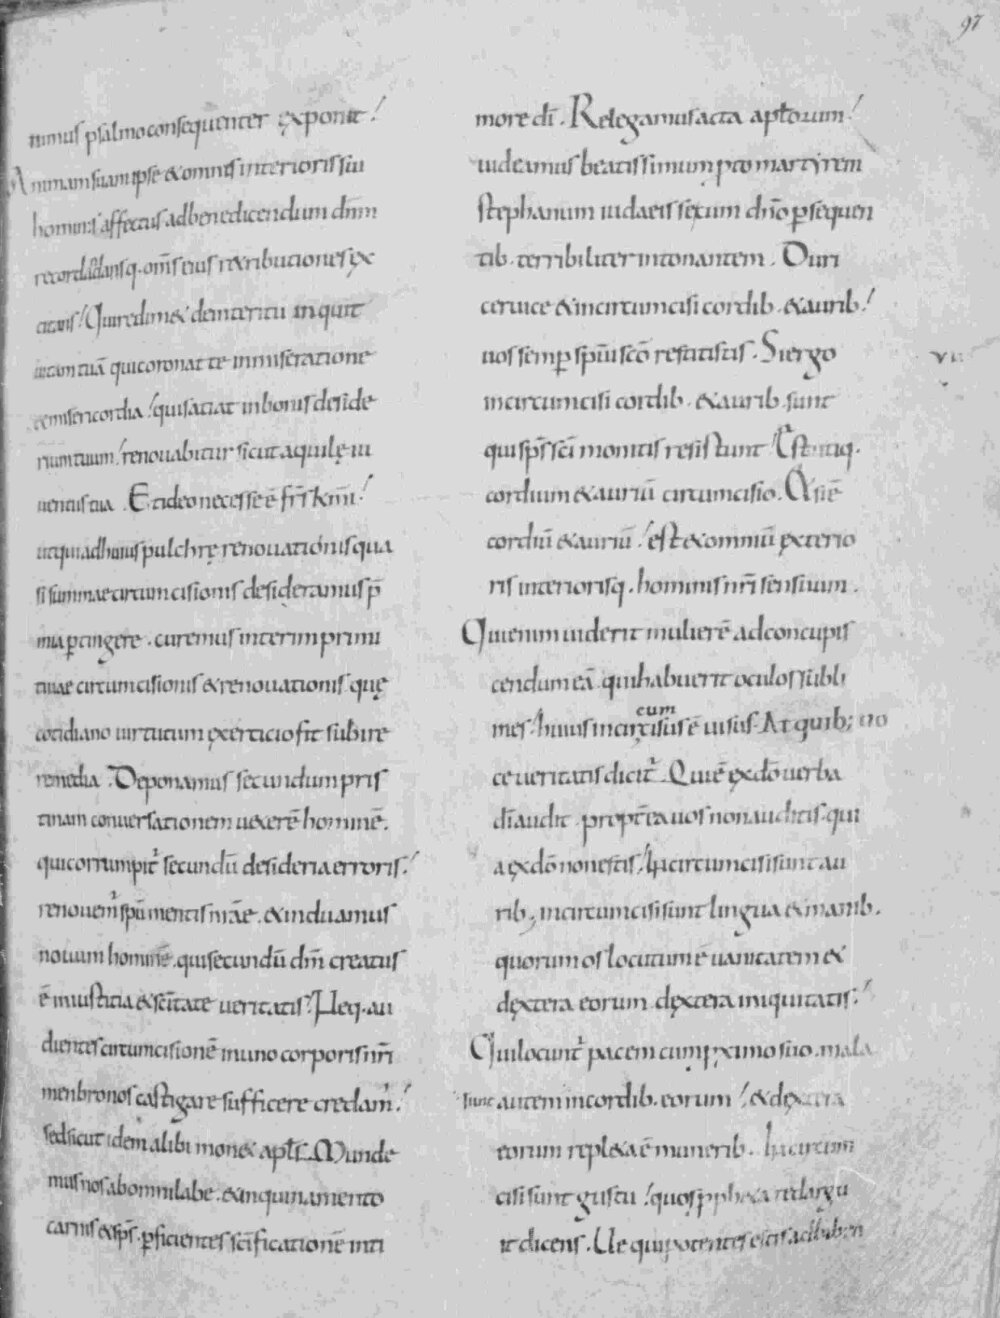 97
nimus psalmo consequenter exponit!
Animam suam ipse & omnis interioris sui
hominis affectus ad benedicendum dñm
recordandasq. om̄s eius retributiones ex
citans! Qui redim& de interitu inquit
uitam tuā qui coronat te in miseratione
& misericordia! qui satiat in bonis deside
rium tuum! renouabitur sicut aquilę iu
uentus tua. Et ideo necesse ē fr̄s km̄i!
ut qui ad huius pulchrę renouationis qua
si summae circumcisionis desideramus p̄
mia ꝑtingere. curemus interim primi
tiuae circumcisionis & renouationis quę
cotidiano uirtutum exercicio fit subire
remedia. Deponamus secundum pris
tinam conuersationem ueterē hominē.
qui corrumpit̄ secundū desideria erroris!
renouem̄ spū mentis nr̄ae. & induamus
nouum hominē. qui secundū dm̄ creatus
ē in iustitia & sc̄itate ueritatis. Neq. au
dientes circumcisionē in uno corporis nr̄i
menbro nos castigare sufficere credam̄!
sed sicut idem alibi mon& apl̄s. Munde
mus nos ab omni labe. & inquinamento
carnis & sp̄s. ꝑficientes sc̄ificationē in ti
more dī. Relegamus acta apl̄orum!
uideamus beatissimum protomartyrem
stephanum iudaeis sectum dn̄o ꝑsequen
tib. terribiliter intonantem. Duri
ceruice & incircumcisi cordib. & aurib!
uos semꝑ spūi scō restitistis. Si ergo
VII
incircumcisi cordib. & aurib. sunt
qui sp̄s sc̄i monitis resistunt! Est utiq.
cordium & auriū circumcisio. At si ē
cordiū & auriū! est & omniū exterio
ris interiorisq. hominis nr̄i sensuum.
Qui enim uiderit mulierē ad concupis
cendum eā. qui habuerit oculos subli
mes! huius incircumcisus ē uisus. At quib; uo
ce ueritatis dicit̄. Qui ē ex dō uerba
dī audit. propt̄ea uos non auditis. qui
a ex dō non estis! hi circumcisi sunt au
rib; incircumcisi sunt lingua & manib.
quorum os locutum ē uanitatem &
dextera eorum dextera iniquitatis!
Qui locunt̄ pacem cum ꝓximo suo. mala
sunt autem in cordib. eorum! & dextera
eorum repl&a ē munerib. Incircum
cisi sunt gustu! quos ꝓpheta redargu
it dicens. Ue qui potentes estis ad biben